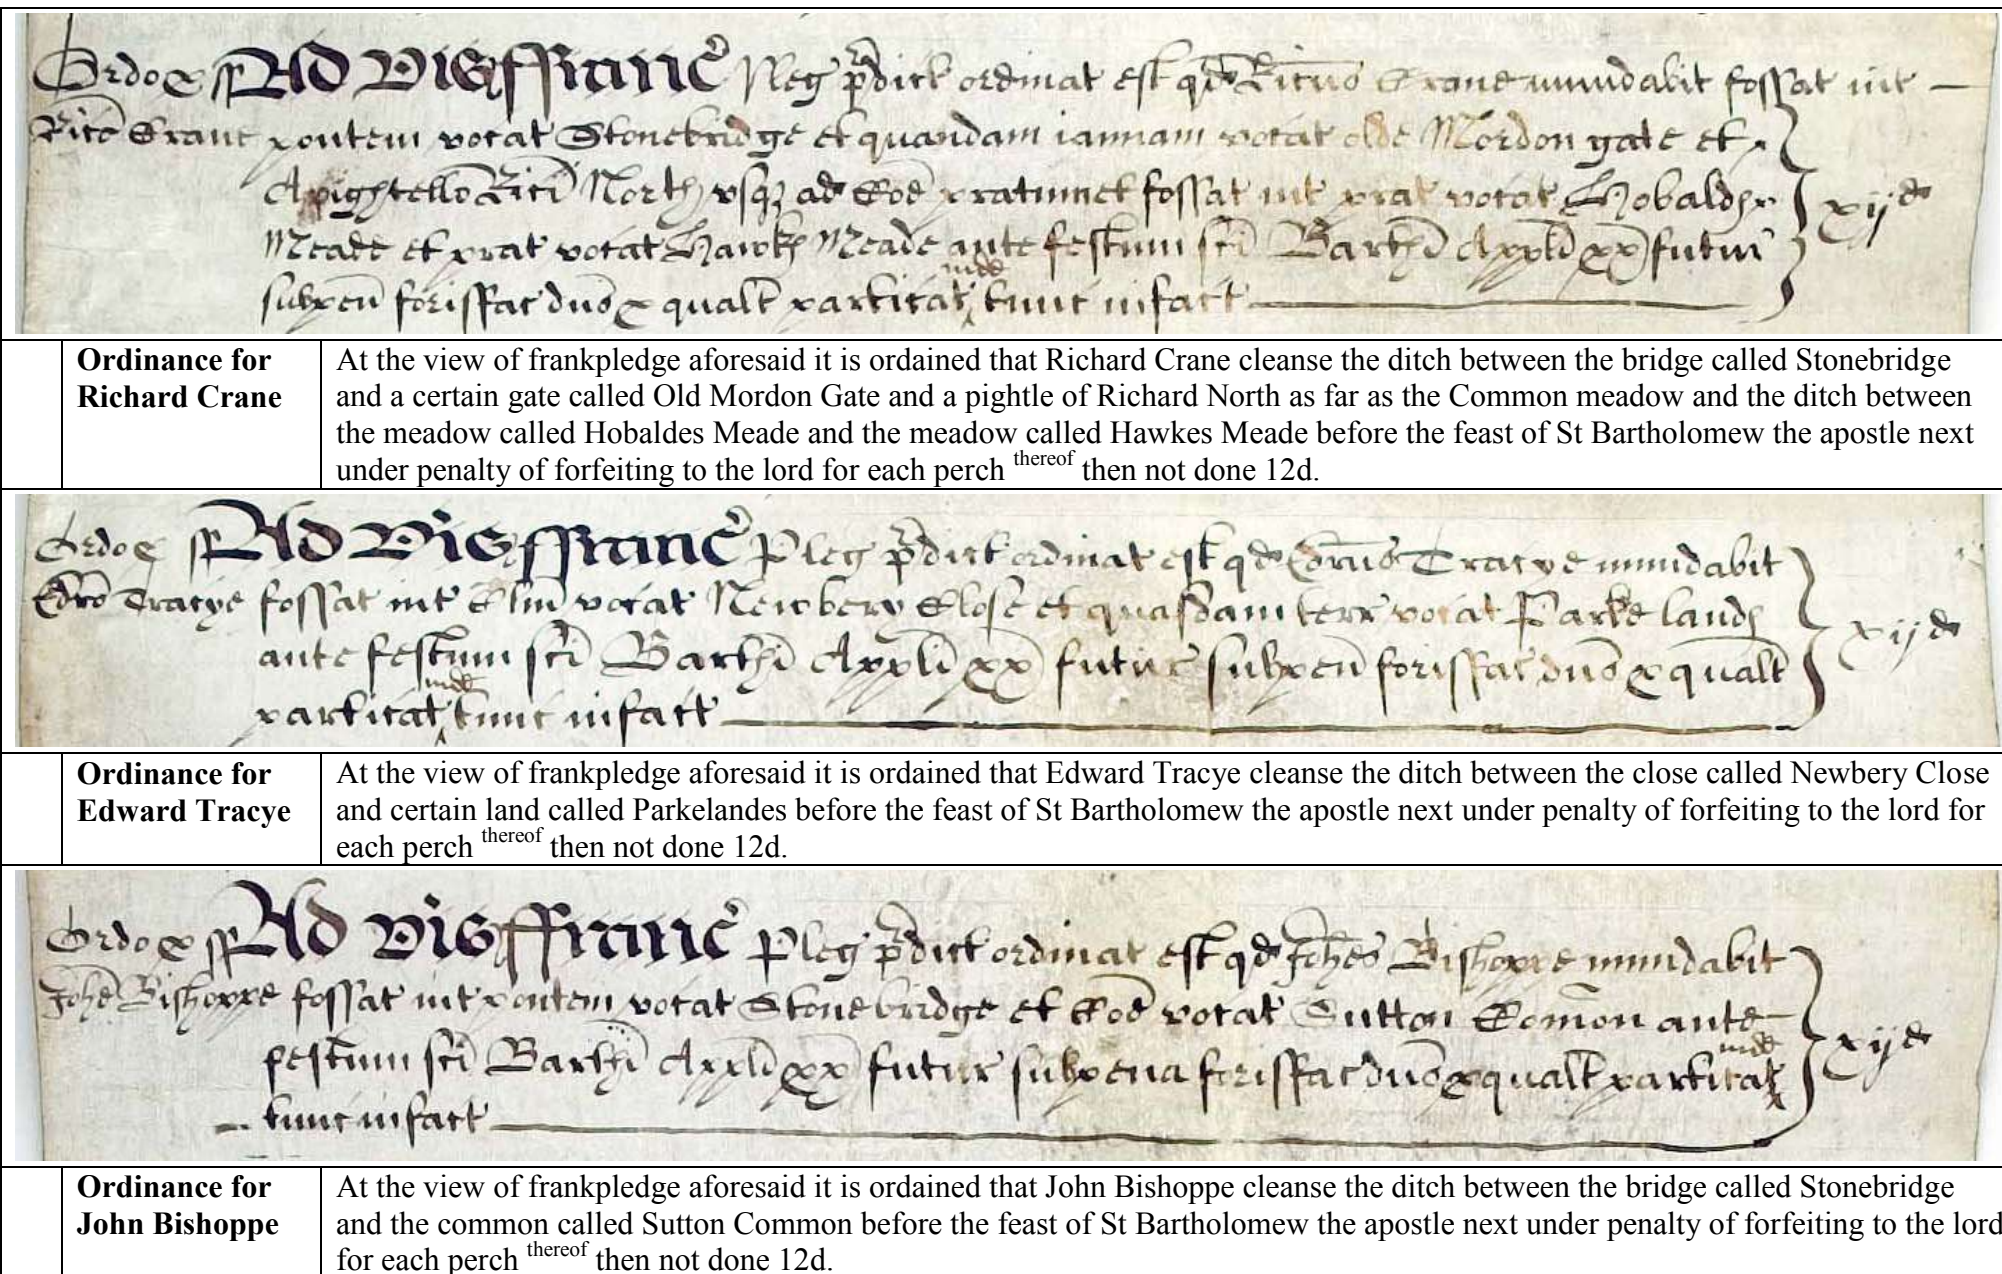 Ordo p ss Ad vis ffranc Pleg p̄dict ordinat est qd Ric̄us Crane mundabit fossat int
Ric̄o Crane pontem vocat Stonebridge et quandam iannam vocat olde Mordon gate et
A pightello Ric̄i North vsq ad Cōe pratum et fossat int prat vocat Hobaldes
Meade et prat vocat Hawkes Meade ante festum sc̄i Barth̄i Appl̄i px̄ futur xijd
subpen̄ forisffac dn̄o p qualt particat inde tunc infact
Ordinance for Richard Crane
At the view of frankpledge aforesaid it is ordained that Richard Crane cleanse the ditch between the bridge called Stonebridge
and a certain gate called Old Mordon Gate and a pightle of Richard North as far as the Common meadow and the ditch between
the meadow called Hobaldes Meade and the meadow called Hawkes Meade before the feast of St Bartholomew the apostle next
under penalty of forfeiting to the lord for each perch thereof then not done 12d.
Ordo p ss Ad vis ffranc Pleg p̄dict ordinat est qd Edrūs Tracye mundabit
Edr̄o Tracye fossat int Clm̄ vocat Newbery Close et quasdam terr vocat Parke landes xijd
ante festum sc̄i Barth̄i Appl̄i px̄ futur subpen̄ forisffac dn̄o p qualt
particat inde tunc infact
Ordinance for Edward Tracye
At the view of frankpledge aforesaid it is ordained that Edward Tracye cleanse the ditch between the close called Newbery Close
and certain land called Parkelandes before the feast of St Bartholomew the apostle next under penalty of forfeiting to the lord for
each perch thereof then not done 12d.
Ordo p ss Ad vis ffranc Pleg p̄dict ordinat est qd Joh̄es Bishoppe mundabit
Joh̄e Bishoppe fossat int pontem vocat Stonebridge et Cōe vocat Sutton Comōn ante
festum sc̄i Barth̄i Appl̄i px̄ futur subpena forisffac dn̄o p qualt particat inde xijd
tunc infact
Ordinance for John Bishoppe
At the view of frankpledge aforesaid it is ordained that John Bishoppe cleanse the ditch between the bridge called Stonebridge
and the common called Sutton Common before the feast of St Bartholomew the apostle next under penalty of forfeiting to the lord
for each perch thereof then not done 12d.